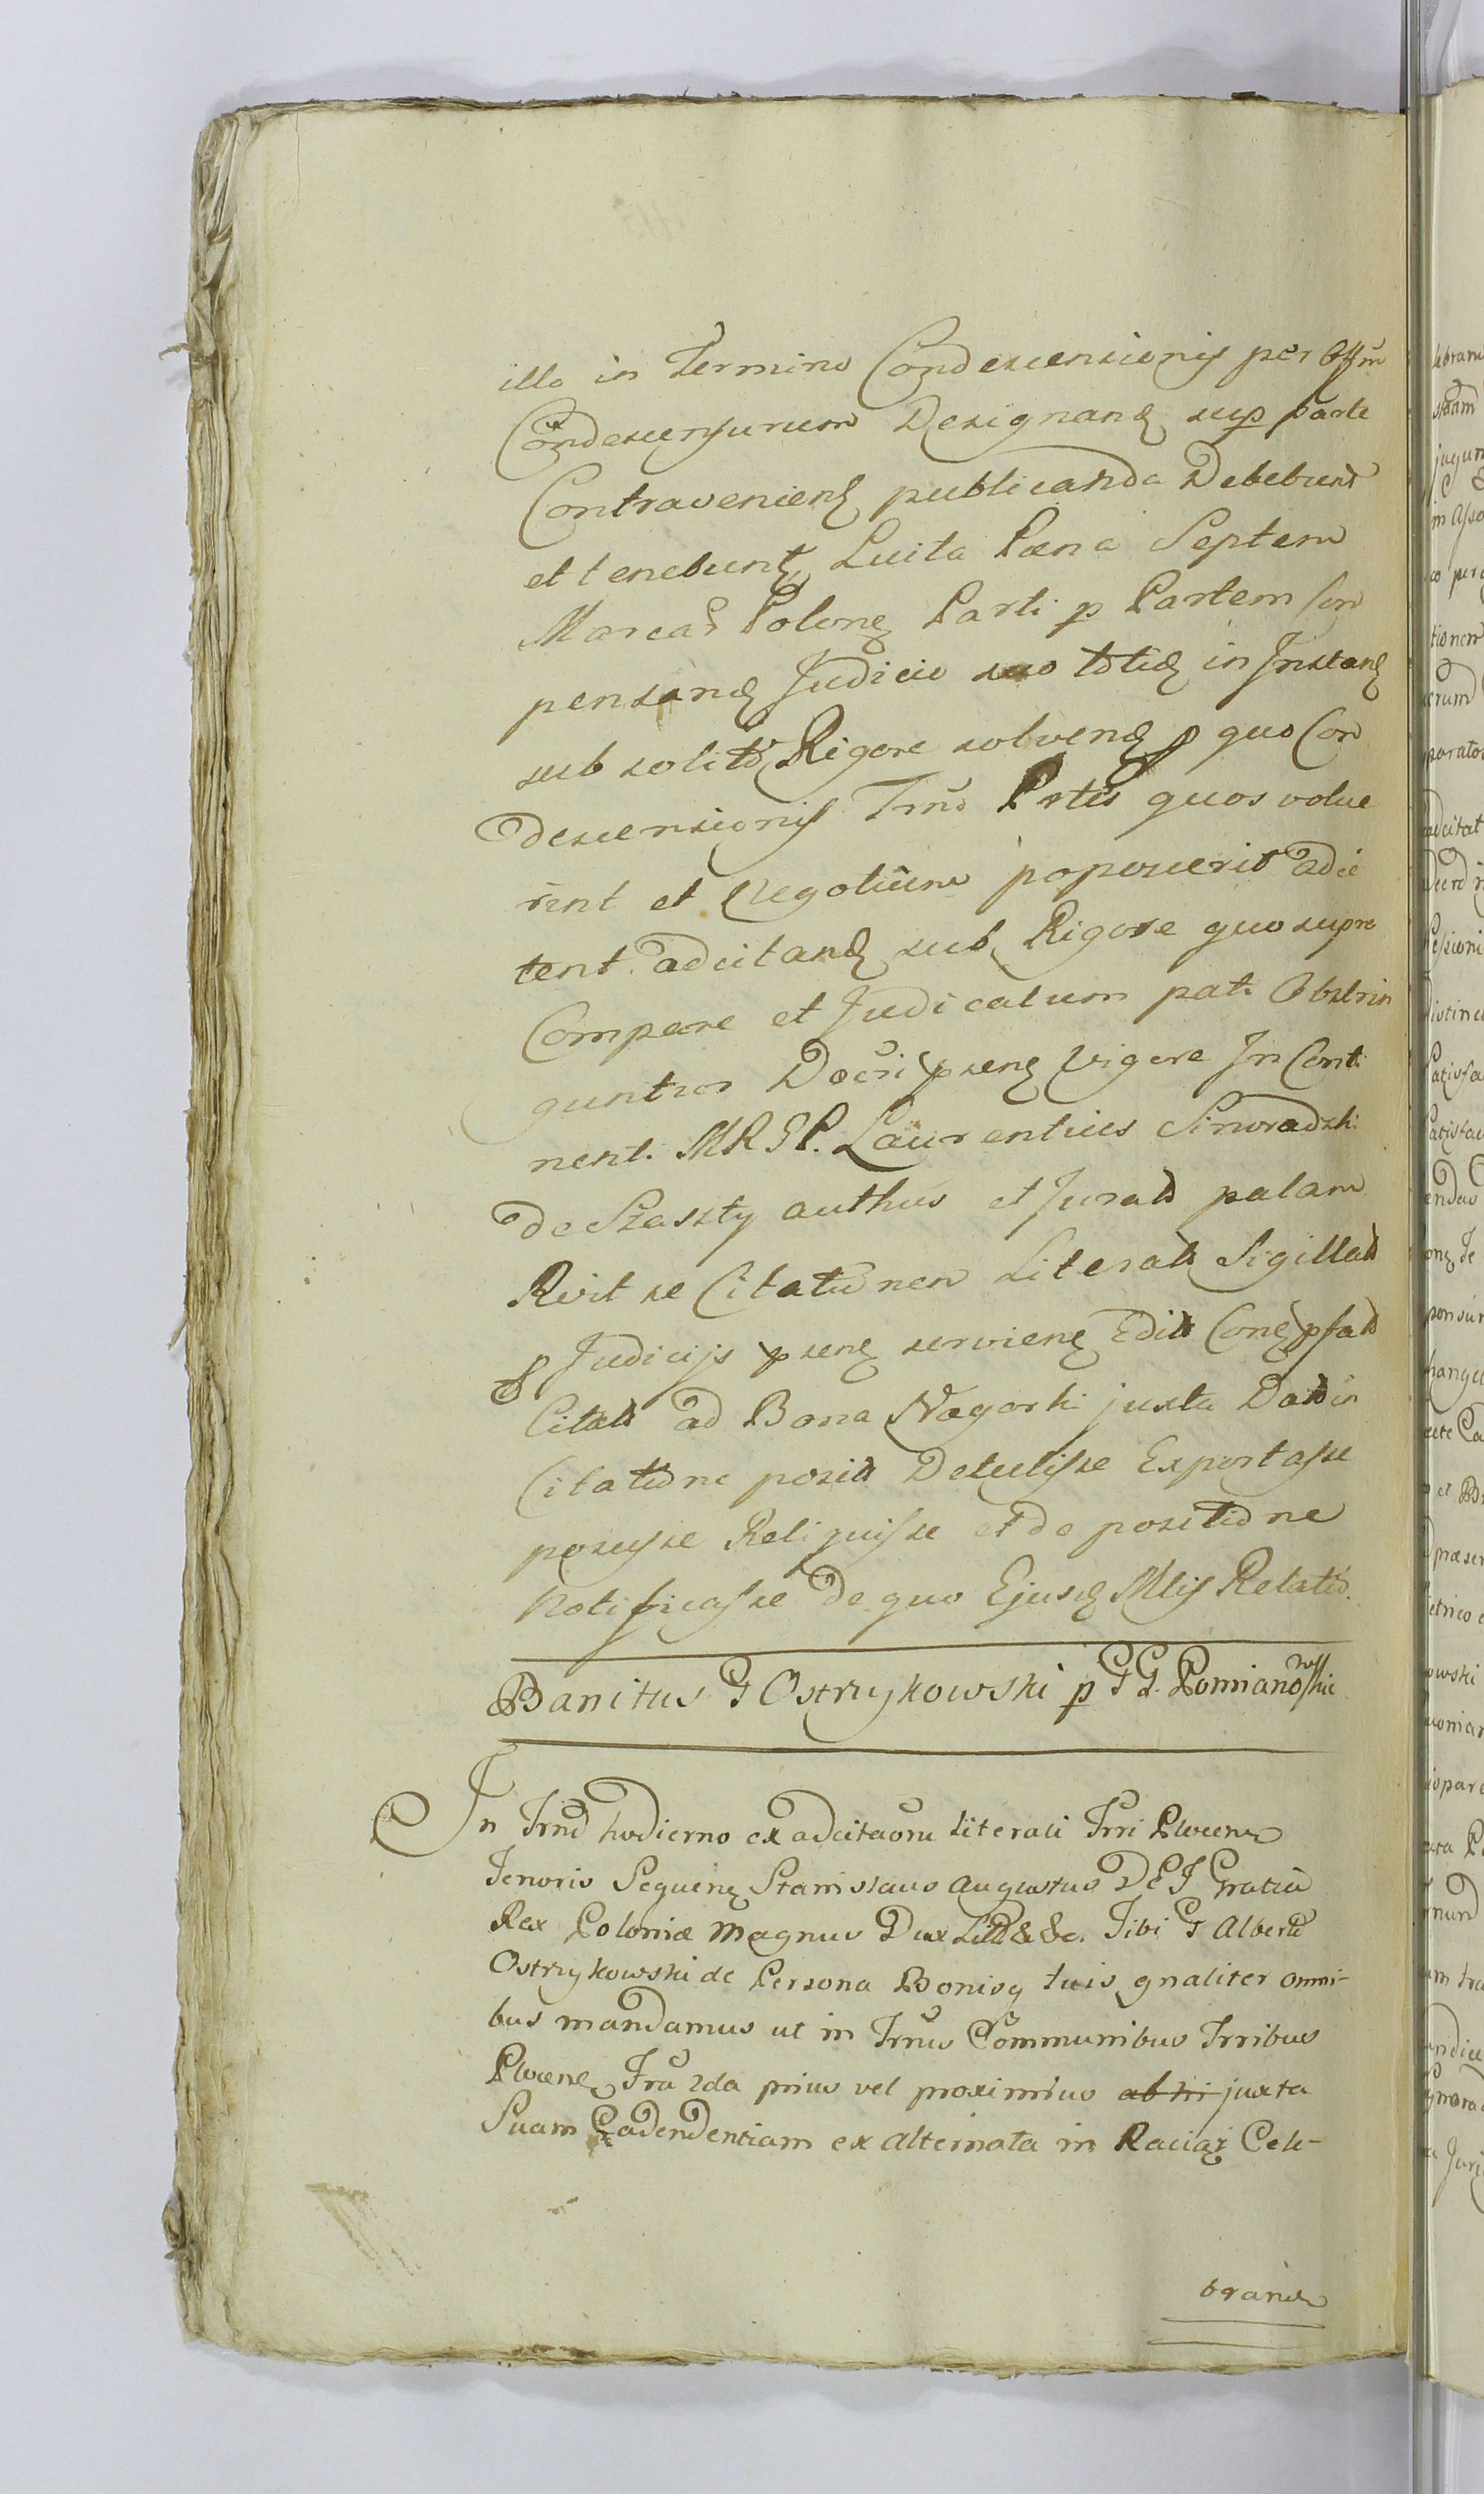 illo in Termino Condescensionis per Offm
Condescensurum Designand sup parte
Contravenien publicanda Debebunt
et tenebunt Luita Pæna Septem
Marcar Polon Parti p Partem Com
pensand Judicio suo totid in Instan
sub solito Rigore solvend p quo Con
descensionis Trno Ptes quos volue
rint et Negotium poposcerit adci
tent adcitand sub Rigore quo supra
Compare et Judicatum pati Obstrin
guntur Decri psen Vigore In Conti
nent. MRSP. Laurentius Sinoradzki
de Szaszty authus et Jurat palam
Rvit se Citationem Literat Sigillat
p Judicijs psen servien Edit Con psat
Citat ad Bona Nagorki juxta Dat in
Citatione posit Detulisse Exportasse
posuisse Reliquisse et de positione
Notificasse de quo Ejusd Mlis Relatio.
Banitus G Ostrzykowski p GG. Pomianowskie
In Trno hodierno ex adcitaone literali Trri Plocen
Tenoris Sequen Stanislaus Augustus DEI Gratia
Rex Poloniæ Magnus Dux Litt &c &c. Tibi G Alberte
Ostrzykowski de Persona Bonisq tuis gnaliter omni-
bus mandamus ut in Trnis Communibus Trribus
Plocen Fra 2da prius vel proximius ab hi juxta
Suam Cadendentiam ex alternata in Raciąz Cele-
brand